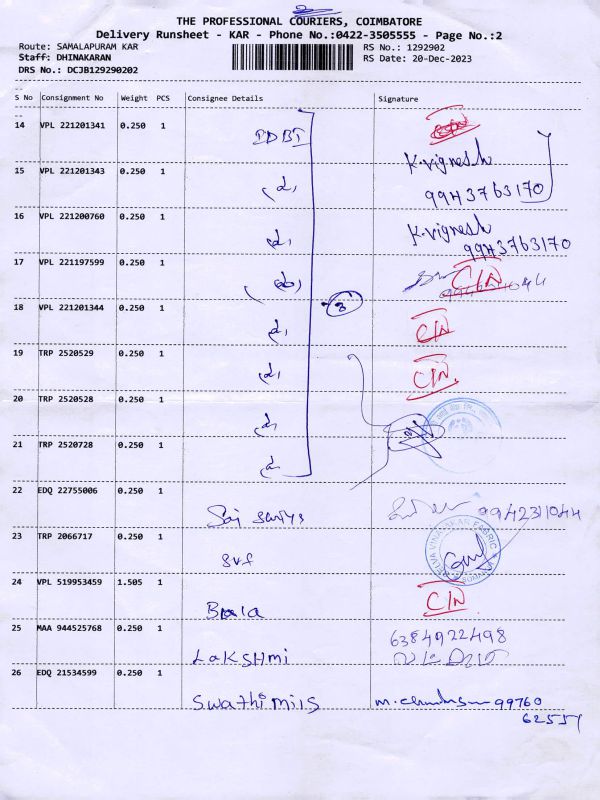 THE PROFESSIONAL COURIERS, COIMBATORE
Delivery Runsheet - KAR - Phone No.:0422-3505555 - Page No.:2
Route: SAMALAPURAM KAR RS No.: 1292902
Staff: DHINAKARAN RS Date: 20-Dec-2023
DRS No.: DCJB129290202
S No Consignment No Weight PCS Consignee Details Signature
14 VPL 221201341 0.250 1 IDBI
K.vignesh
15 VPL 221201343 0.250 1 9943763170
16 VPL 221200760 0.250 1 K.vignesh
9943763170
17 VPL 221197599 0.250 1 C/N
18 VPL 221201344 0.250 1 C/N
19 TRP 2520529 0.250 1 C/N
20 TRP 2520528 0.250 1
21 TRP 2520728 0.250 1
22 EDQ 22755006 0.250 1 Sai 9942311044
23 TRP 2066717 0.250 1 SVF
24 VPL 519953459 1.505 1 Bala C/N
25 MAA 944525768 0.250 1 LaKSHmi 6384922498
26 EDQ 21534599 0.250 1 Swathi Mills 99760
62557